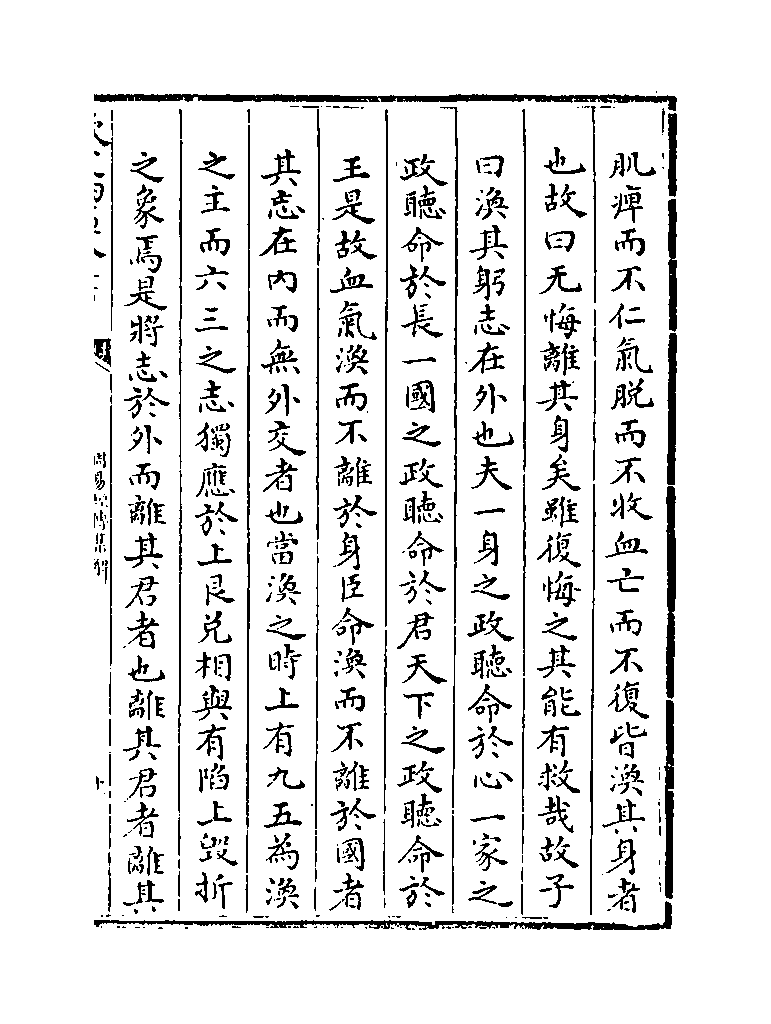 肌痺而不仁氣脱而不收血亡而不復皆渙其身者
也故曰无悔離其身矣雖復悔之其能有救哉故子
曰渙其躬志在外也夫一身之政聽命於心一家之
政聽命於長一國之政聽命於君天下之政聽命於
王是故血氣渙而不離於身臣命渙而不離於國者
其志在内而無外交者也當渙之時上有九五為渙
之主而六三之志獨應於上艮兑相與有陷上毁折
之象焉是將志於外而離其君者也離其君者離其
周易經傳集解